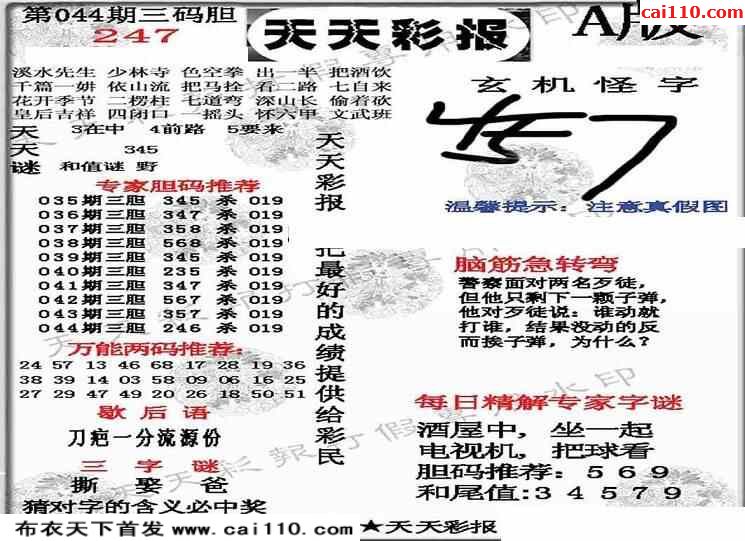 第044期三码胆
247
天天彩报
A版
cai110.com
溪水先生 少林寺 色空拳 出一半 把酒饮
千篇一妍 依山流 把马拴 看二路 七自来
花开季节 二楞柱 七道弯 深山长 偷着砍
皇后吉祥 四闭口 一摇头 怀六甲 文武班
天 3在中 4前路 5要来
天 345
谜 和值谜 野
专家胆码推荐
035期三胆 345 杀 019
036期三胆 347 杀 019
037期三胆 358 杀 019
038期三胆 568 杀 019
039期三胆 345 杀 019
040期三胆 235 杀 019
041期三胆 347 杀 019
042期三胆 567 杀 019
043期三胆 357 杀 019
044期三胆 246 杀 019
万能两码推荐:
24 57 13 46 68 17 28 19 36
38 39 14 03 58 09 06 16 25
27 29 47 49 20 26 18 50 51
歇后语
刀疤一分流源份
三字谜
撕 娶 爸
猜对字的含义必中奖
天天彩报
把最好的成绩提供给彩民
玄机怪字
457
温馨提示: 注意真假图
脑筋急转弯
警察面对两名歹徒,
但他只剩下一颗子弹,
他对歹徒说: 谁动就
打谁, 结果没动的反
而挨子弹, 为什么?
每日精解专家字谜
酒屋中, 坐一起
电视机, 把球看
胆码推荐: 5 6 9
和尾值:3 4 5 7 9
布衣天下首发 www.cai110.com ★天天彩报